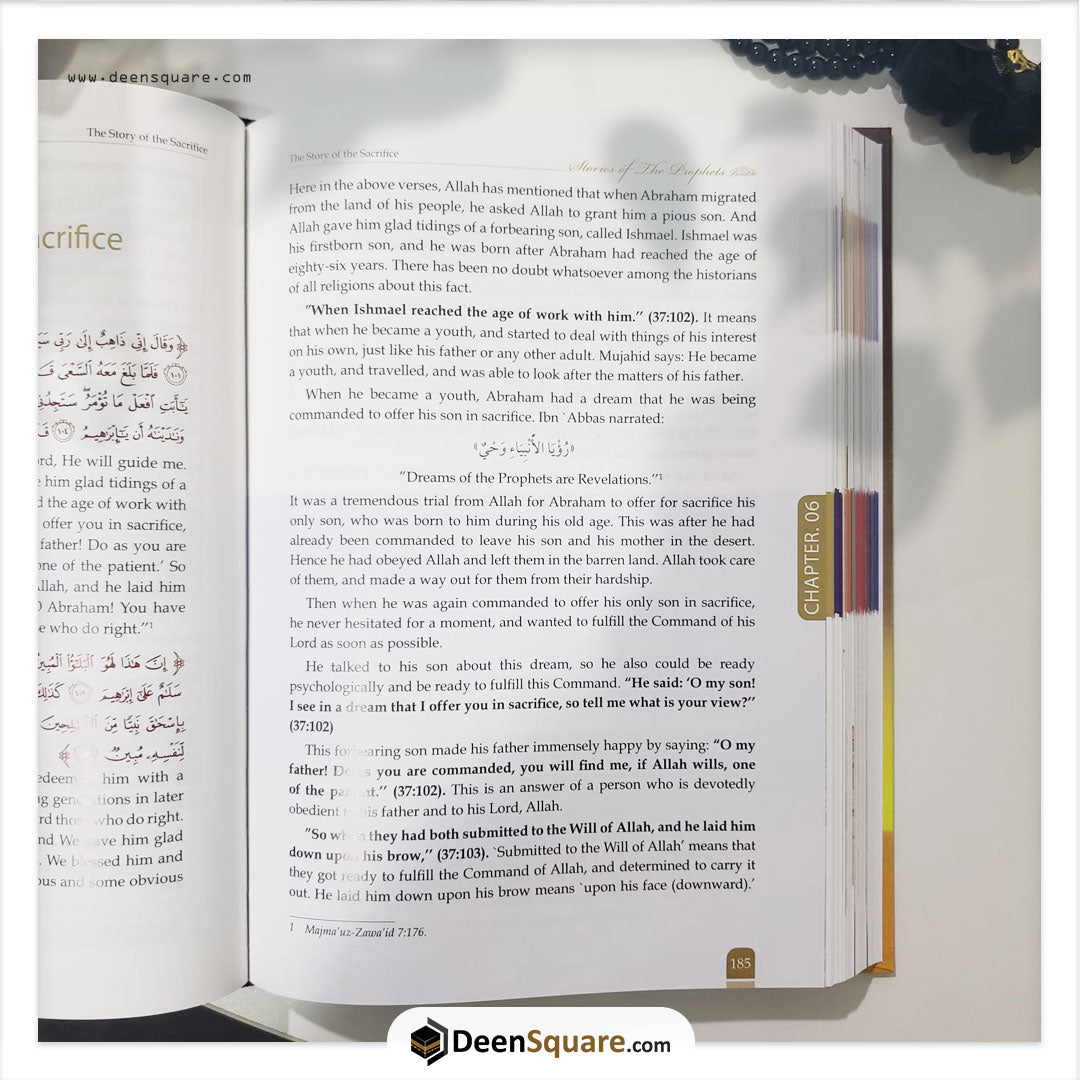 www.deensquare.com
The Story of the Sacrifice
crifice
﴿وَقَالَ إِنِّي ذَاهِبٌ إِلَىٰ رَبِّي
﴿١٠١﴾ فَلَمَّا بَلَغَ مَعَهُ ٱلسَّعْىَ
يَٰٓأَبَتِ ٱفْعَلْ مَا تُؤْمَرُ ۖ
وَنَٰدَيْنَٰهُ أَن يَٰٓإِبْرَٰهِيمُ ﴿١٠٤﴾
ord, He will guide me.
e him glad tidings of a
d the age of work with
offer you in sacrifice,
father! Do as you are
one of the patient.’ So
Allah, and he laid him
O Abraham! You have
e who do right.”1
﴿إِنَّ هَٰذَا لَهُوَ ٱلْبَلَٰٓؤُا۟
سَلَٰمٌ عَلَىٰٓ إِبْرَٰهِيمَ
بِإِسْحَٰقَ نَبِيًّا مِّنَ
لِّنَفْسِهِۦ مُبِينٌ
him with a
in later
who do right.
nd We gave him glad
. We blessed him and
ous and some obvious
The Story of the Sacrifice
Stories of The Prophets
Here in the above verses, Allah has mentioned that when Abraham migrated
from the land of his people, he asked Allah to grant him a pious son. And
Allah gave him glad tidings of a forbearing son, called Ishmael. Ishmael was
his firstborn son, and he was born after Abraham had reached the age of
eighty-six years. There has been no doubt whatsoever among the historians
of all religions about this fact.
”When Ishmael reached the age of work with him.” (37:102). It means
that when he became a youth, and started to deal with things of his interest
on his own, just like his father or any other adult. Mujahid says: He became
a youth, and travelled, and was able to look after the matters of his father.
When he became a youth, Abraham had a dream that he was being
commanded to offer his son in sacrifice. Ibn `Abbas narrated:
«رُؤْيَا الأَنْبِيَاءِ وَحْيٌ»
”Dreams of the Prophets are Revelations.”1
It was a tremendous trial from Allah for Abraham to offer for sacrifice his
only son, who was born to him during his old age. This was after he had
already been commanded to leave his son and his mother in the desert.
Hence he had obeyed Allah and left them in the barren land. Allah took care
of them, and made a way out for them from their hardship.
Then when he was again commanded to offer his only son in sacrifice,
he never hesitated for a moment, and wanted to fulfill the Command of his
Lord as soon as possible.
He talked to his son about this dream, so he also could be ready
psychologically and be ready to fulfill this Command. “He said: ‘O my son!
I see in a dream that I offer you in sacrifice, so tell me what is your view?”
(37:102)
This forbearing son made his father immensely happy by saying: “O my
father! Do as you are commanded, you will find me, if Allah wills, one
of the patient.” (37:102). This is an answer of a person who is devotedly
obedient to his father and to his Lord, Allah.
”So when they had both submitted to the Will of Allah, and he laid him
down upon his brow,” (37:103). `Submitted to the Will of Allah’ means that
they got ready to fulfill the Command of Allah, and determined to carry it
out. He laid him down upon his brow means `upon his face (downward).’
1 Majma'uz-Zawa'id 7:176.
185
CHAPTER. 06
DeenSquare.com